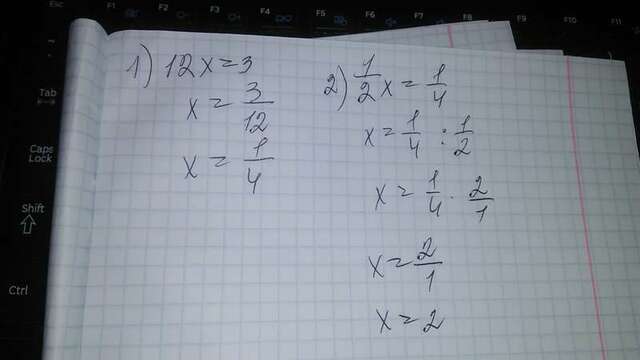 Esc F1 F2 F3 F4 F5 F6 F7 F8 F9 F10 F11
Tab
Caps Lock
Shift
Ctrl
1) 12x=3
x = 3/12
x = 1/4
2) 1/2 x = 1/4
x = 1/4 : 1/2
x = 1/4 · 2/1
x = 2/1
x = 2